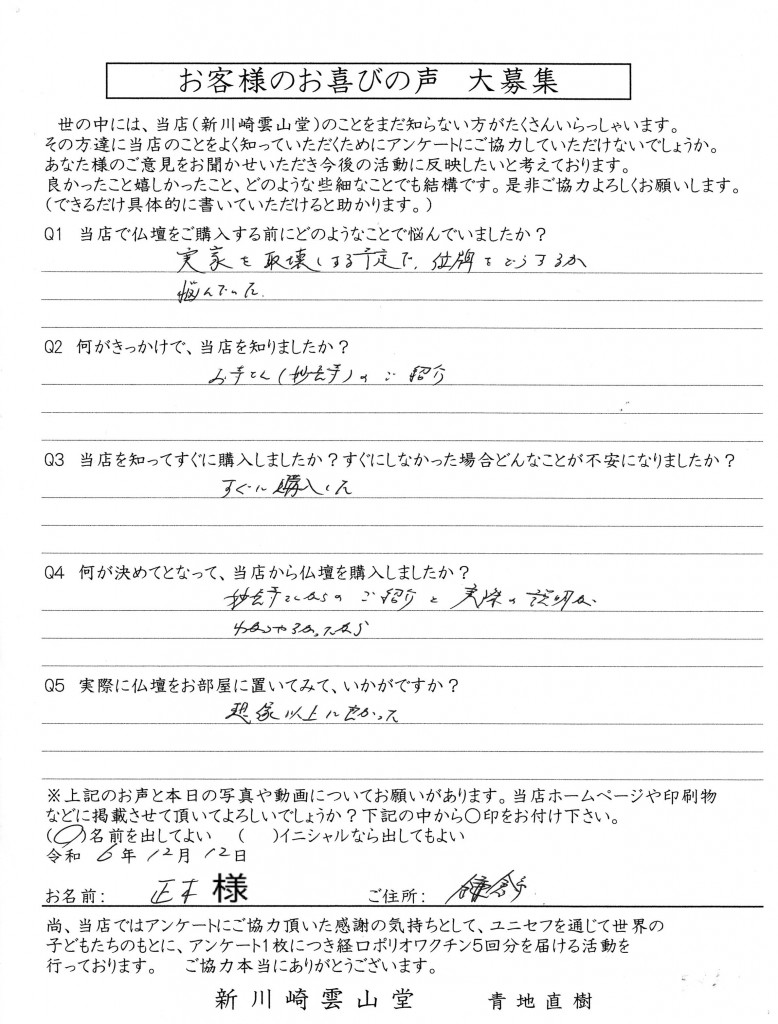 お客様のお喜びの声　大募集
世の中には、当店(新川崎雲山堂)のことをまだ知らない方がたくさんいらっしゃいます。
その方達に当店のことをよく知っていただくためにアンケートにご協力していただけないでしょうか。
あなた様のご意見をお聞かせいただき今後の活動に反映したいと考えております。
良かったこと嬉しかったこと、どのような些細なことでも結構です。是非ご協力よろしくお願いします。
(できるだけ具体的に書いていただけると助かります。)
Q1 当店で仏壇をご購入する前にどのようなことで悩んでいましたか?
実家を取壊しする予定で、位牌をどうするか
悩んでいた。
Q2 何がきっかけで、当店を知りましたか?
お寺さん(妙法寺)のご紹介
Q3 当店を知ってすぐに購入しましたか?すぐにしなかった場合どんなことが不安になりましたか?
すぐに購入した
Q4 何が決めてとなって、当店から仏壇を購入しましたか?
のご紹介と実際の説明が
わかりやすかったから
Q5 実際に仏壇をお部屋に置いてみて、いかがですか?
想像以上に良かった
※上記のお声と本日の写真や動画についてお願いがあります。当店ホームページや印刷物
などに掲載させて頂いてよろしいでしょうか?下記の中から〇印をお付け下さい。
(〇)名前を出してよい　(　)イニシャルなら出してもよい
令和 6年 12月 12日
お名前: 正木様　ご住所: 鎌倉市
尚、当店ではアンケートにご協力頂いた感謝の気持ちとして、ユニセフを通じて世界の
子どもたちのもとに、アンケート1枚につき経口ポリオワクチン5回分を届ける活動を
行っております。　ご協力本当にありがとうございます。
新川崎雲山堂　青地直樹